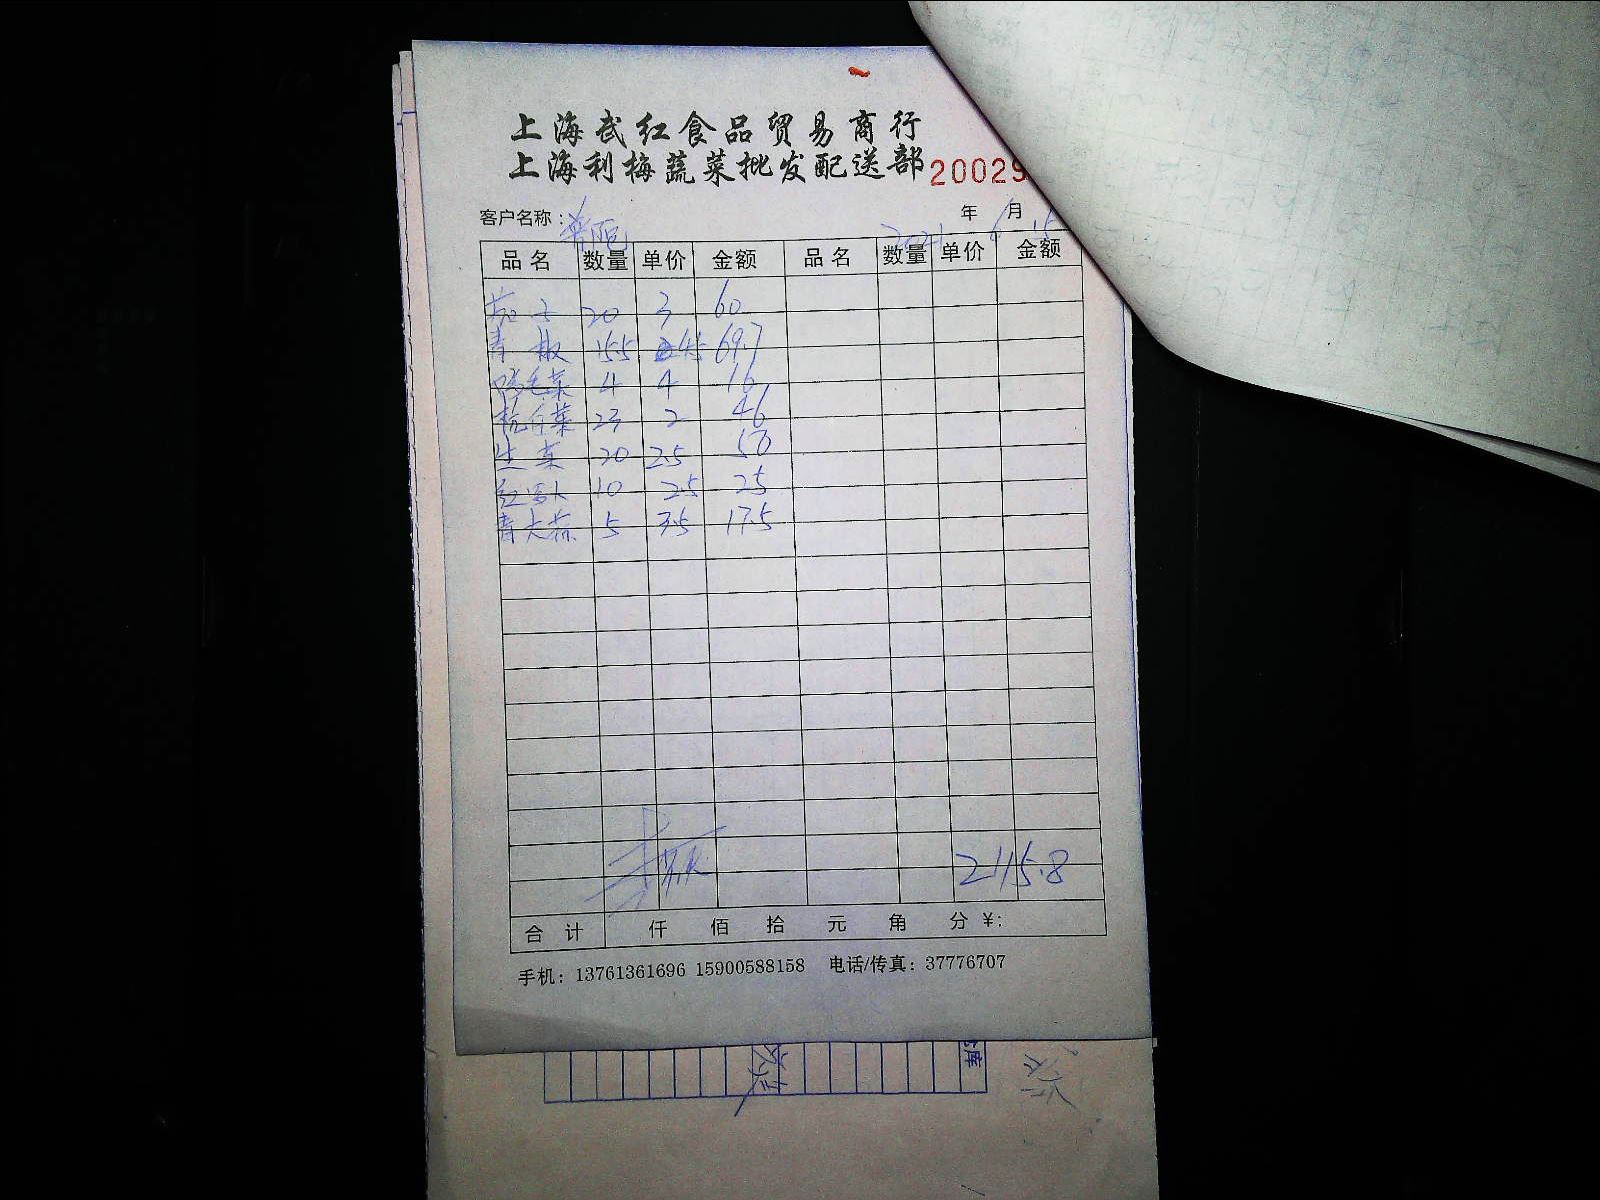 上海武红食品贸易商行
上海利梅蔬菜批发配送部 20029
客户名称： 年 月
2021 6 15
品名 数量 单价 金额 品名 数量 单价 金额
茄子 20 3 60
青椒 15.5 4.5 69.7
鸡毛菜 4 4 16
杭白菜 23 2 46
生菜 20 2.5 50
10 2.5 25
青大蒜 5 3.5 17.5
2115.8
合计 仟 佰 拾 元 角 分 ¥:
手机：13761361696 15900588158 电话/传真：37776707
库